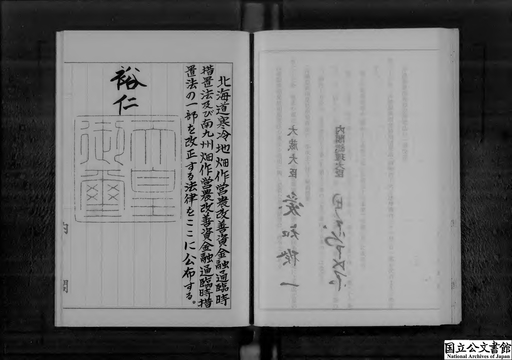 内閣総理大臣
大蔵大臣 愛知揆一
北海道寒冷地畑作営農改善資金融通臨時
措置法及び南九州畑作営農改善資金融通臨時措
置法の一部を改正する法律をここに公布する。
裕仁
天皇
御璽
国立公文書館
National Archives of Japan